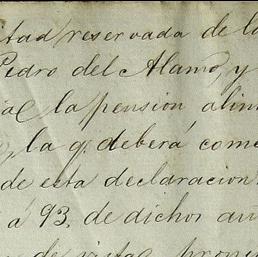 itad reservada de la
Pedro del Alamo, y
la pension alim
la q. deberá come
de esta declaracion
á 93, de dichos añ
de